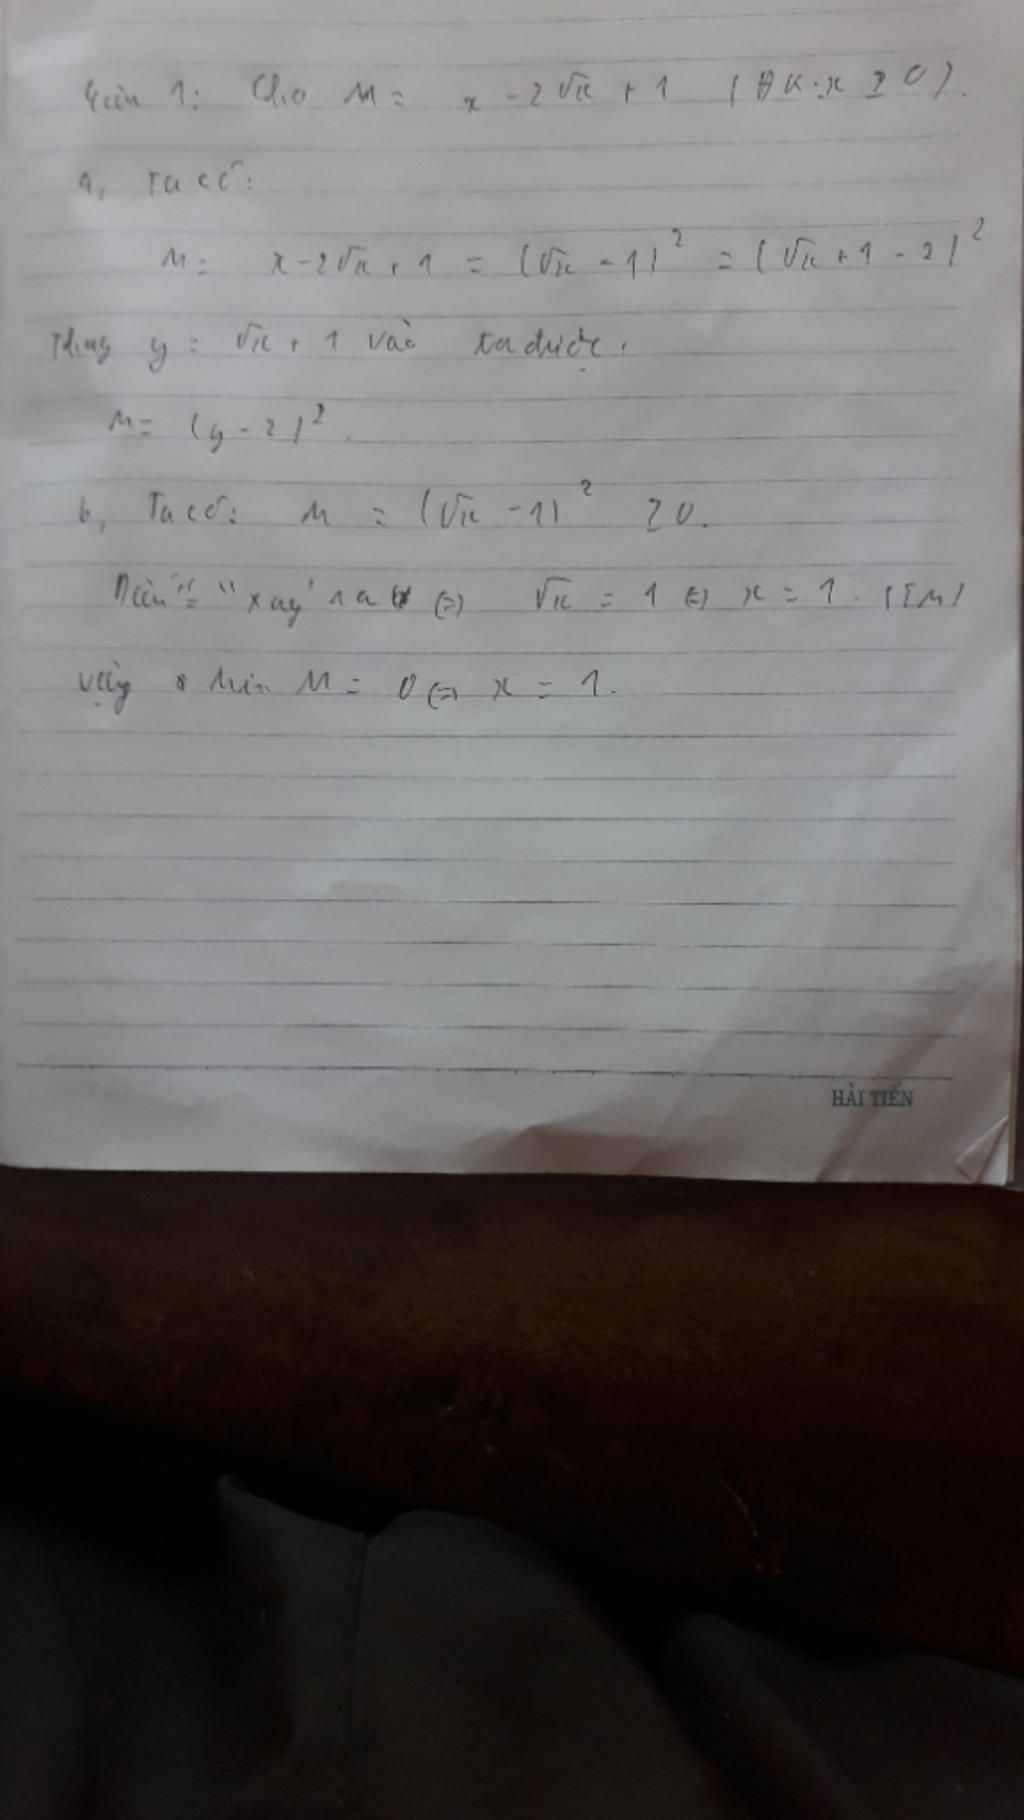 Câu 1: Cho M = x - 2√x + 1 (ĐK: x ≥ 0).
a, Ta có:
M = x - 2√x + 1 = (√x - 1)² = (√x + 1 - 2)²
Thay y = √x + 1 vào ta được:
M = (y - 2)².
b, Ta có: M = (√x - 1)² ≥ 0.
Dấu "=" xảy ra (=) √x = 1 (=) x = 1. (TM)
Vậy Min M = 0 (=) x = 1.
HẢI TIẾN